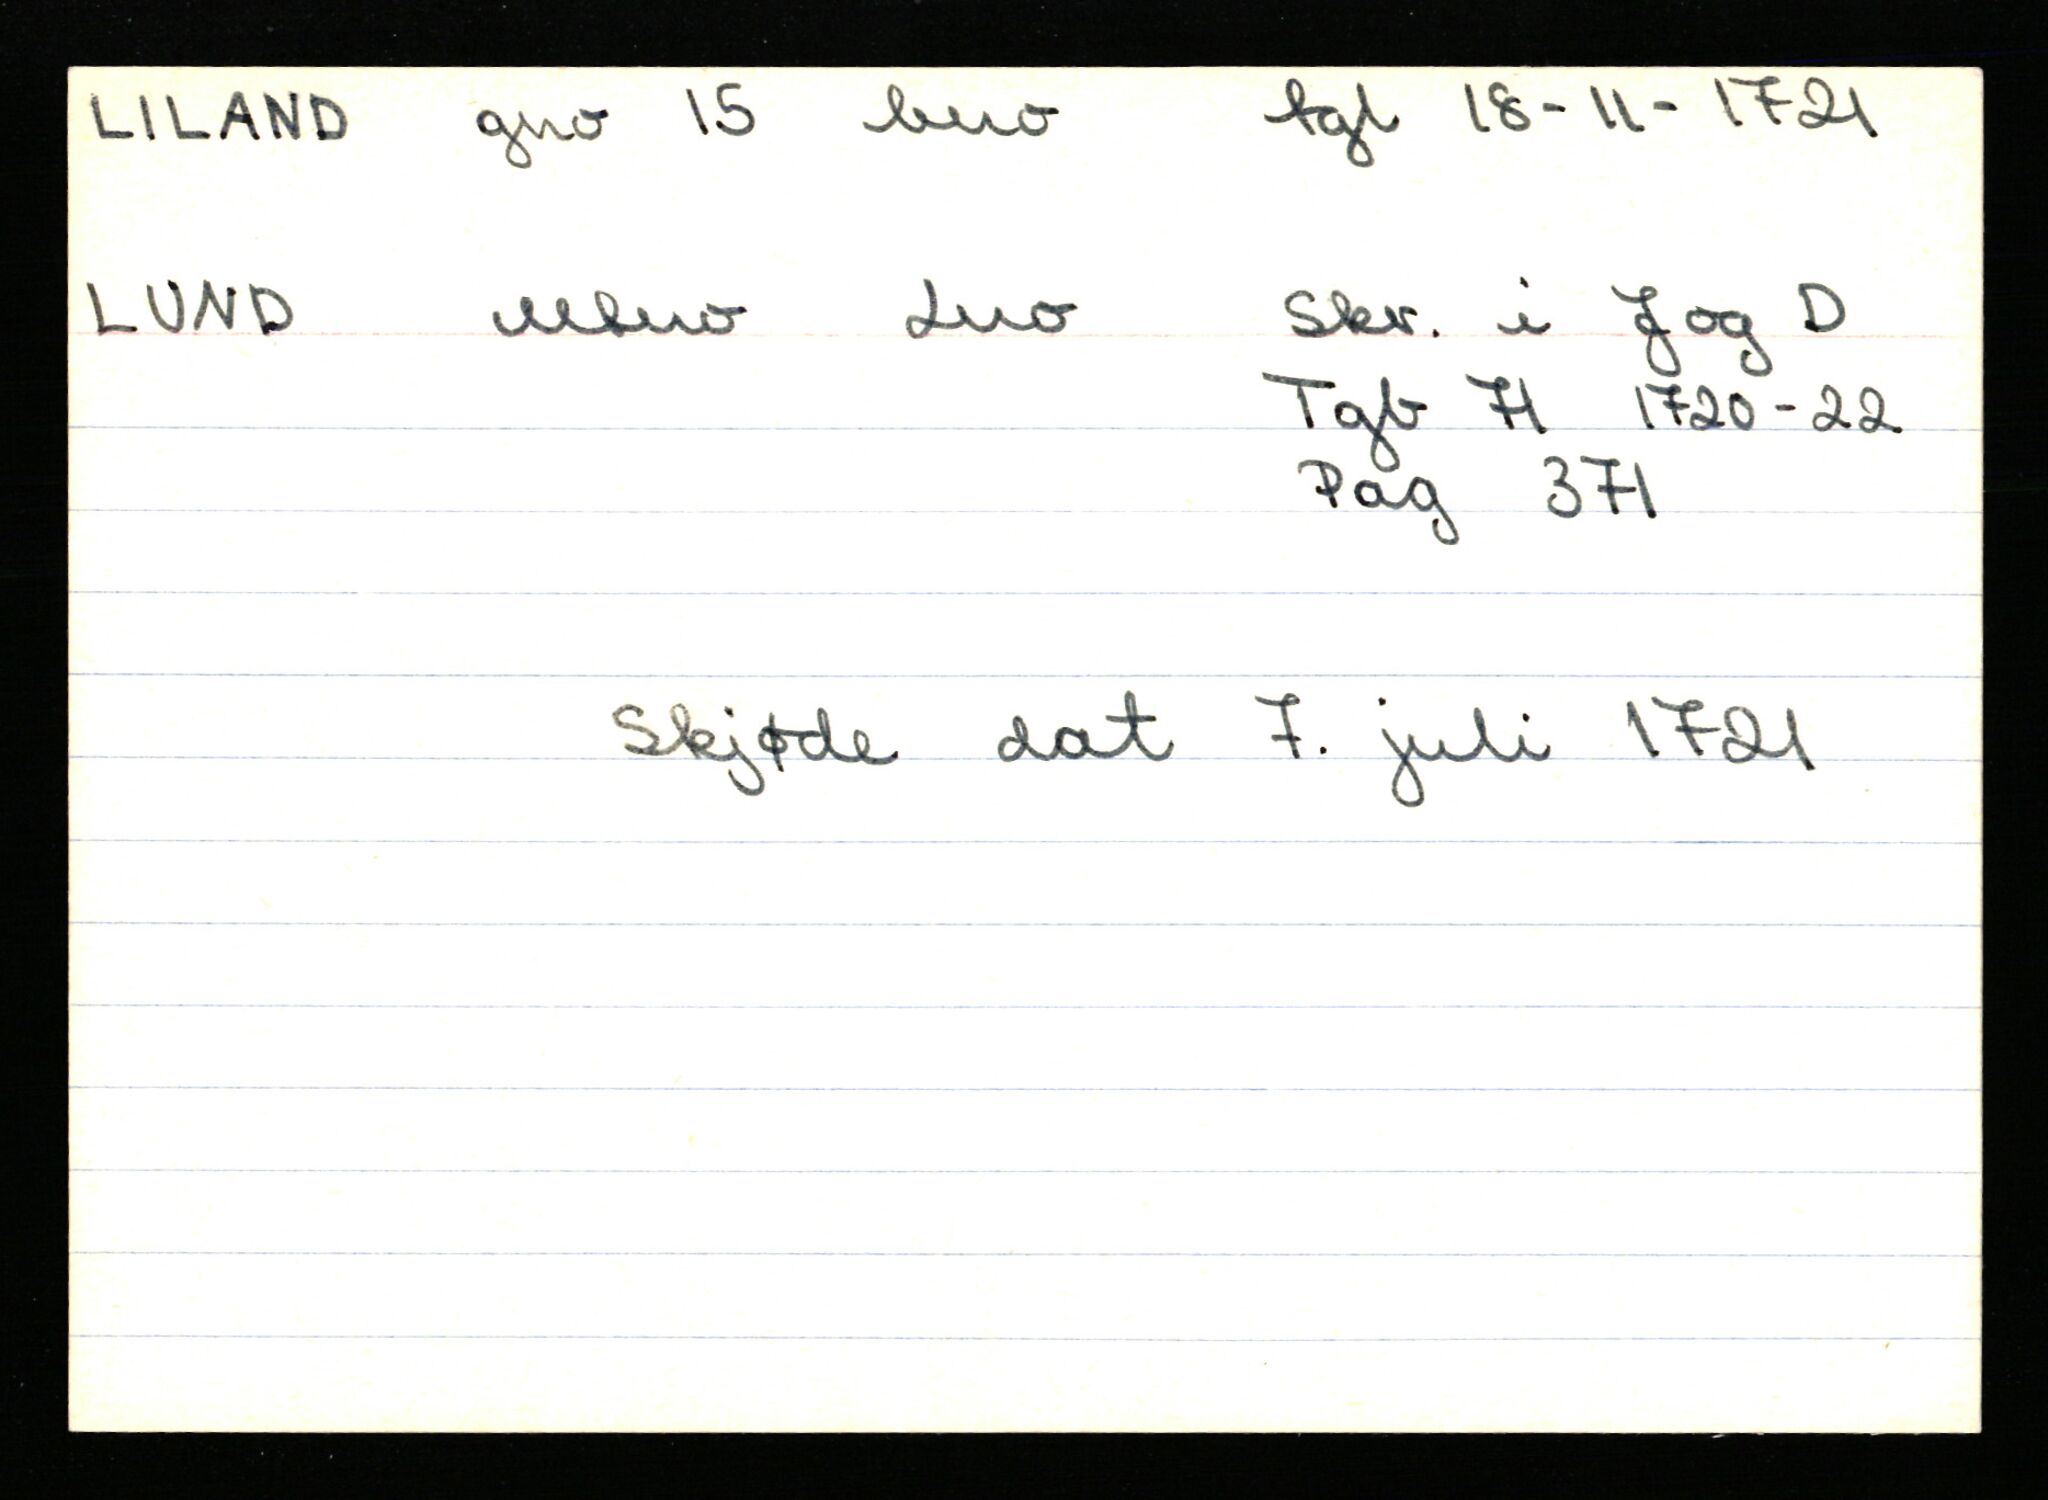 LILAND gno 15 bno tgl 18-11-1721
LUND Mtno Lno Skr. i J og D
Tgb 71 1720-22
Pag 371
Skjøde dat 7. juli 1721